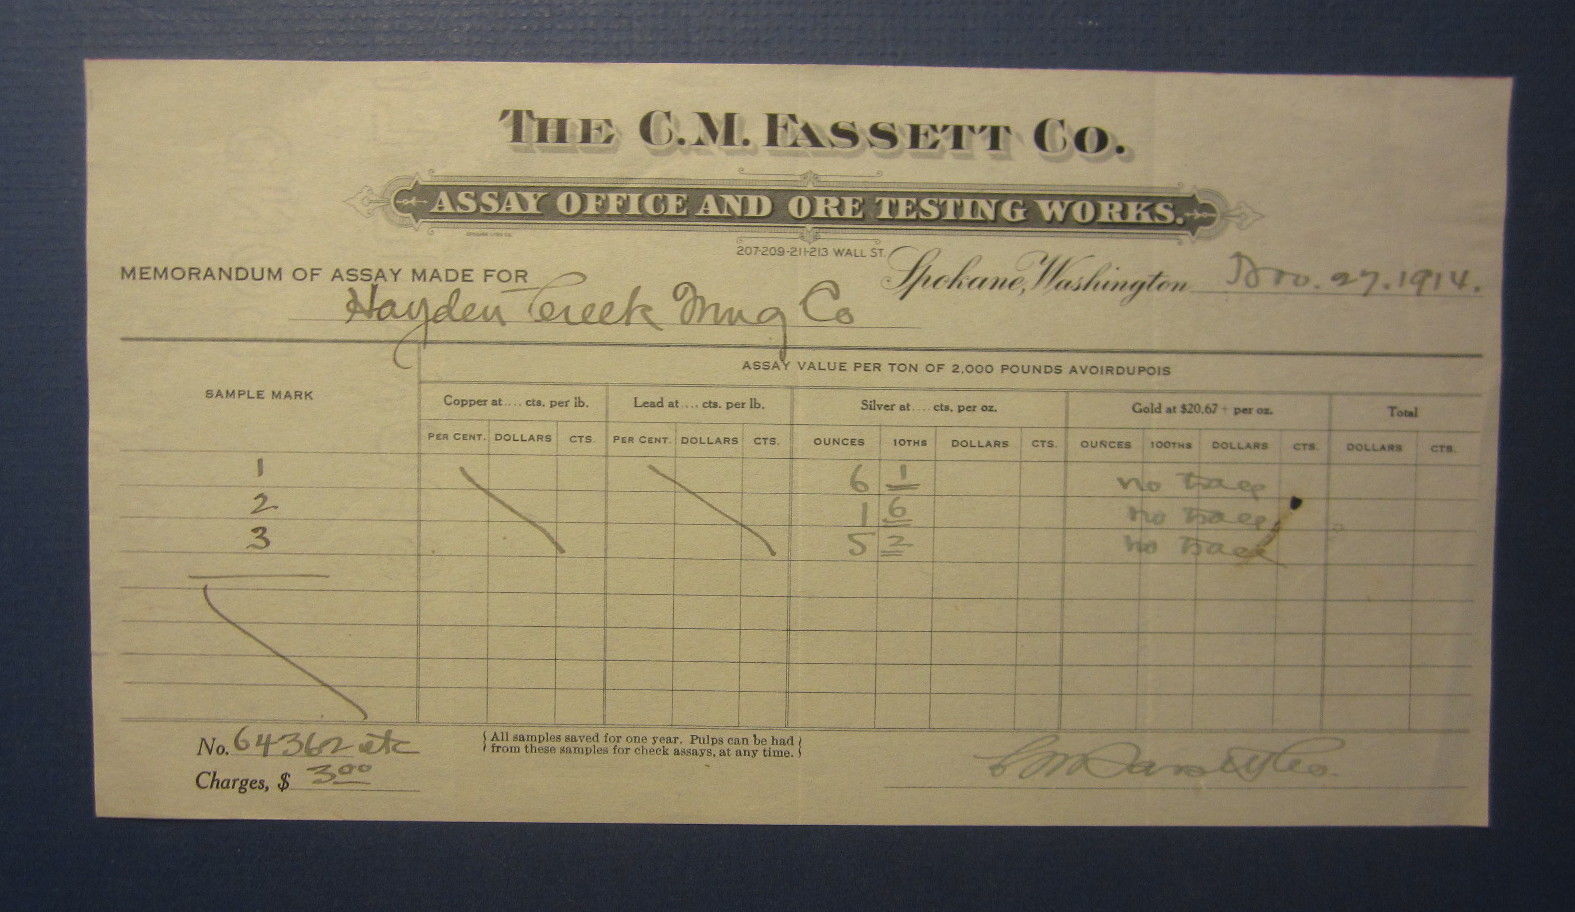 THE C.M. FASSETT CO.
ASSAY OFFICE AND ORE TESTING WORKS.
207-209-211-213 WALL ST.
MEMORANDUM OF ASSAY MADE FOR
Spokane, Washington Nov. 27. 1914.
Hayden Creek Mng Co
SAMPLE MARK
ASSAY VALUE PER TON OF 2,000 POUNDS AVOIRDUPOIS
Copper at.... cts. per lb. Lead at.... cts. per lb. Silver at.... cts, per oz. Gold at $20.67 + per oz. Total
PER CENT. DOLLARS CTS. PER CENT. DOLLARS CTS. OUNCES 10THS DOLLARS CTS. OUNCES 100THS DOLLARS CTS. DOLLARS CTS.
1 6 1 no trace
2 1 6 no trace
3 5 2 no trace
No. 64362 etc
All samples saved for one year. Pulps can be had
from these samples for check assays, at any time.
Charges, $ 3.00
C M Fassett Co.